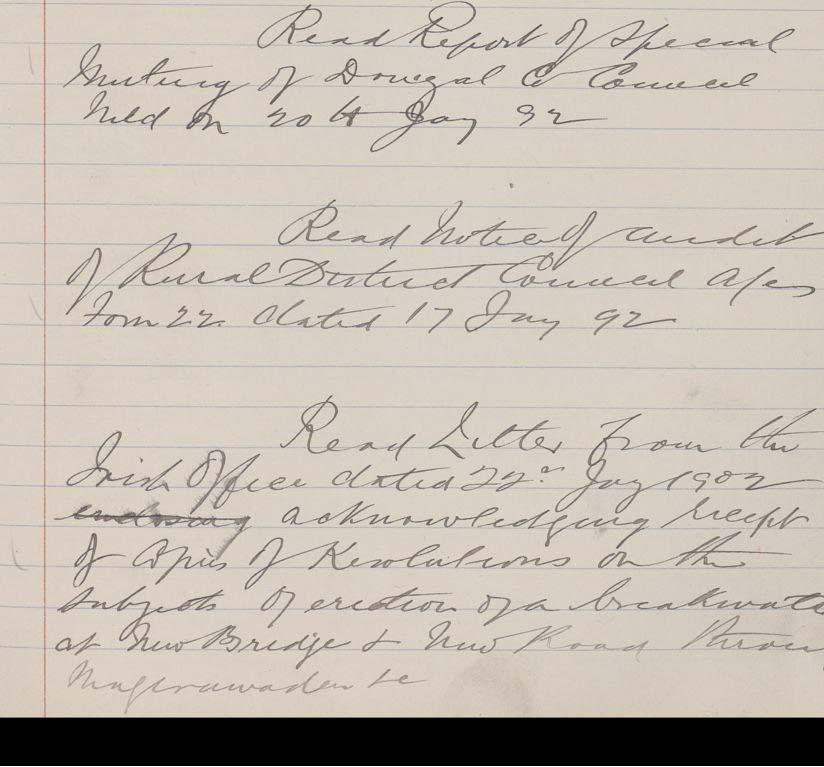 Read Report of Special
Meeting of Donegal Co Council
held on 20th Jany 92
Read Notice of audit
of Rural District Council A/cs
Form 22 dated 17 Jany 92
Read Letter from the
Irish Office dated 22nd Jany 1902
enclosing acknowledging receipt
of Copies of Resolutions on the
subjects of erection of a breakwate
at New Bridge & New Road throu